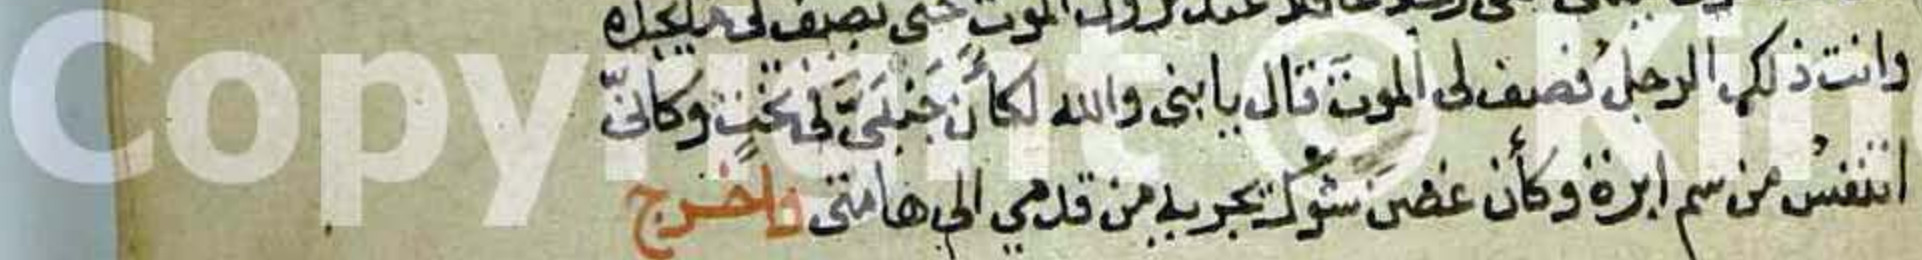 عند نزول الموت حتى يصف لي ما يجده
وانت ذلك الرجل فصف لى الموت قال يا بنى والله لكأن جنبىَّ فى تخت وكأنى
اتنفس من سم ابرة وكأن غصن شوك يجر به من قدمي الى هامتى واخرج
Copyright © Kin